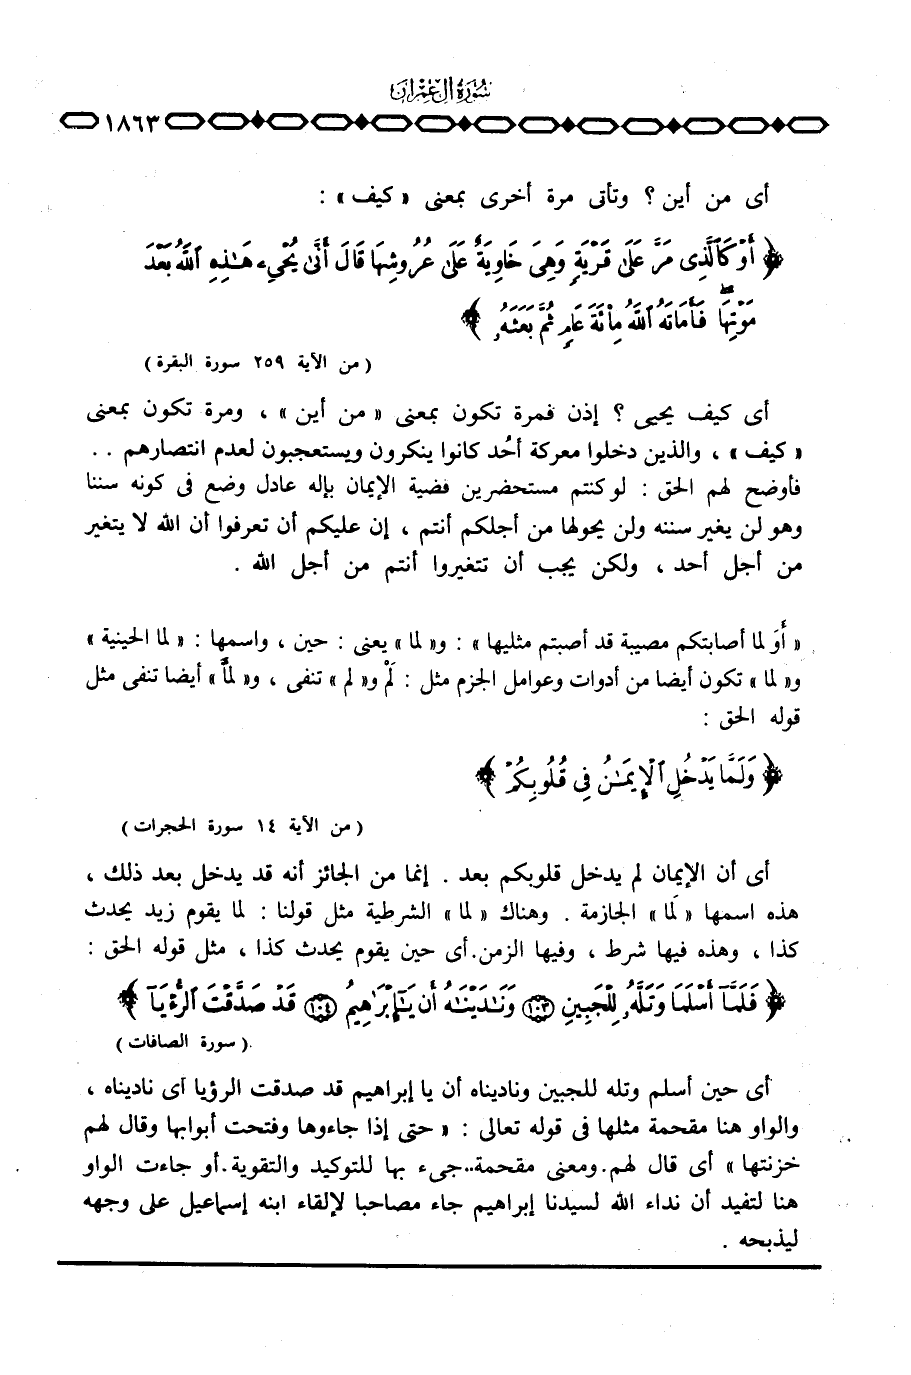 سورة آل عمران
١٨٦٣
أى من أين ؟ وتأتى مرة أخرى بمعنى « كيف » :
﴿ أَوْ كَٱلَّذِى مَرَّ عَلَىٰ قَرْيَةٍ وَهِىَ خَاوِيَةٌ عَلَىٰ عُرُوشِهَا قَالَ أَنَّىٰ يُحْىِۦ هَـٰذِهِ ٱللَّهُ بَعْدَ
مَوْتِهَا ۖ فَأَمَاتَهُ ٱللَّهُ مِاْئَةَ عَامٍ ثُمَّ بَعَثَهُۥ ﴾
( من الآية ٢٥٩ سورة البقرة )
أى كيف يحيى ؟ إذن فمرة تكون بمعنى « من أين » ، ومرة تكون بمعنى
« كيف » ، والذين دخلوا معركة أُحد كانوا ينكرون ويستعجبون لعدم انتصارهم . .
فأوضح لهم الحق : لو كنتم مستحضرين قضية الإيمان بإله عادل وضع فى كونه سننا
وهو لن يغير سننه ولن يحولها من أجلكم أنتم ، إن عليكم أن تعرفوا أن الله لا يتغير
من أجل أحد ، ولكن يجب أن تتغيروا أنتم من أجل الله .
« أَوَ لما أصابتكم مصيبة قد أصبتم مثليها » : و« لما » يعنى : حين ، واسمها : « لما الحينية »
و« لما » تكون أيضا من أدوات وعوامل الجزم مثل : لَمْ و« لم » تنفى ، و« لمَّا » أيضا تنفى مثل
قوله الحق :
﴿ وَلَمَّا يَدْخُلِ ٱلْإِيمَـٰنُ فِى قُلُوبِكُمْ ﴾
( من الآية ١٤ سورة الحجرات )
أى أن الإيمان لم يدخل قلوبكم بعد . إنما من الجائز أنه قد يدخل بعد ذلك ،
هذه اسمها « لَما » الجازمة . وهناك « لما » الشرطية مثل قولنا : لما يقوم زيد يحدث
كذا ، وهذه فيها شرط ، وفيها الزمن.أى حين يقوم يحدث كذا ، مثل قوله الحق :
﴿ فَلَمَّآ أَسْلَمَا وَتَلَّهُۥ لِلْجَبِينِ ١٠٣ وَنَـٰدَيْنَـٰهُ أَن يَـٰٓإِبْرَٰهِيمُ ١٠٤ قَدْ صَدَّقْتَ ٱلرُّءْيَآ ﴾
( سورة الصافات )
أى حين أسلم وتله للجبين وناديناه أن يا إبراهيم قد صدقت الرؤيا أى ناديناه ،
والواو هنا مقحمة مثلها فى قوله تعالى : « حتى إذا جاءوها وفتحت أبوابها وقال لهم
خزنتها » أى قال لهم.ومعنى مقحمة..جىء بها للتوكيد والتقوية.أو جاءت الواو
هنا لتفيد أن نداء الله لسيدنا إبراهيم جاء مصاحبا لإلقاء ابنه إسماعيل على وجهه
ليذبحه .